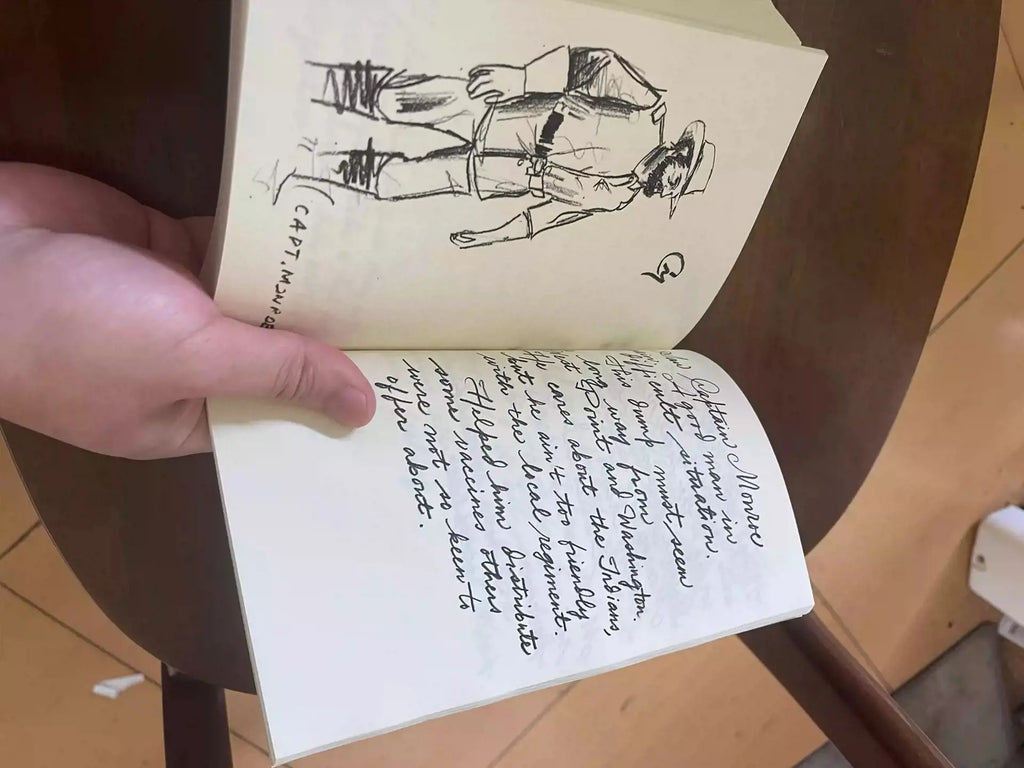 CAPT. MONROE
Captain Monroe
A good man in
situation.
This dump must seem
long way from
Point and Washington.
He cares about the Indians,
but he ain't too friendly
with the local regiment.
Helped him distribute
some vaccines others
were not so keen to
offer about.